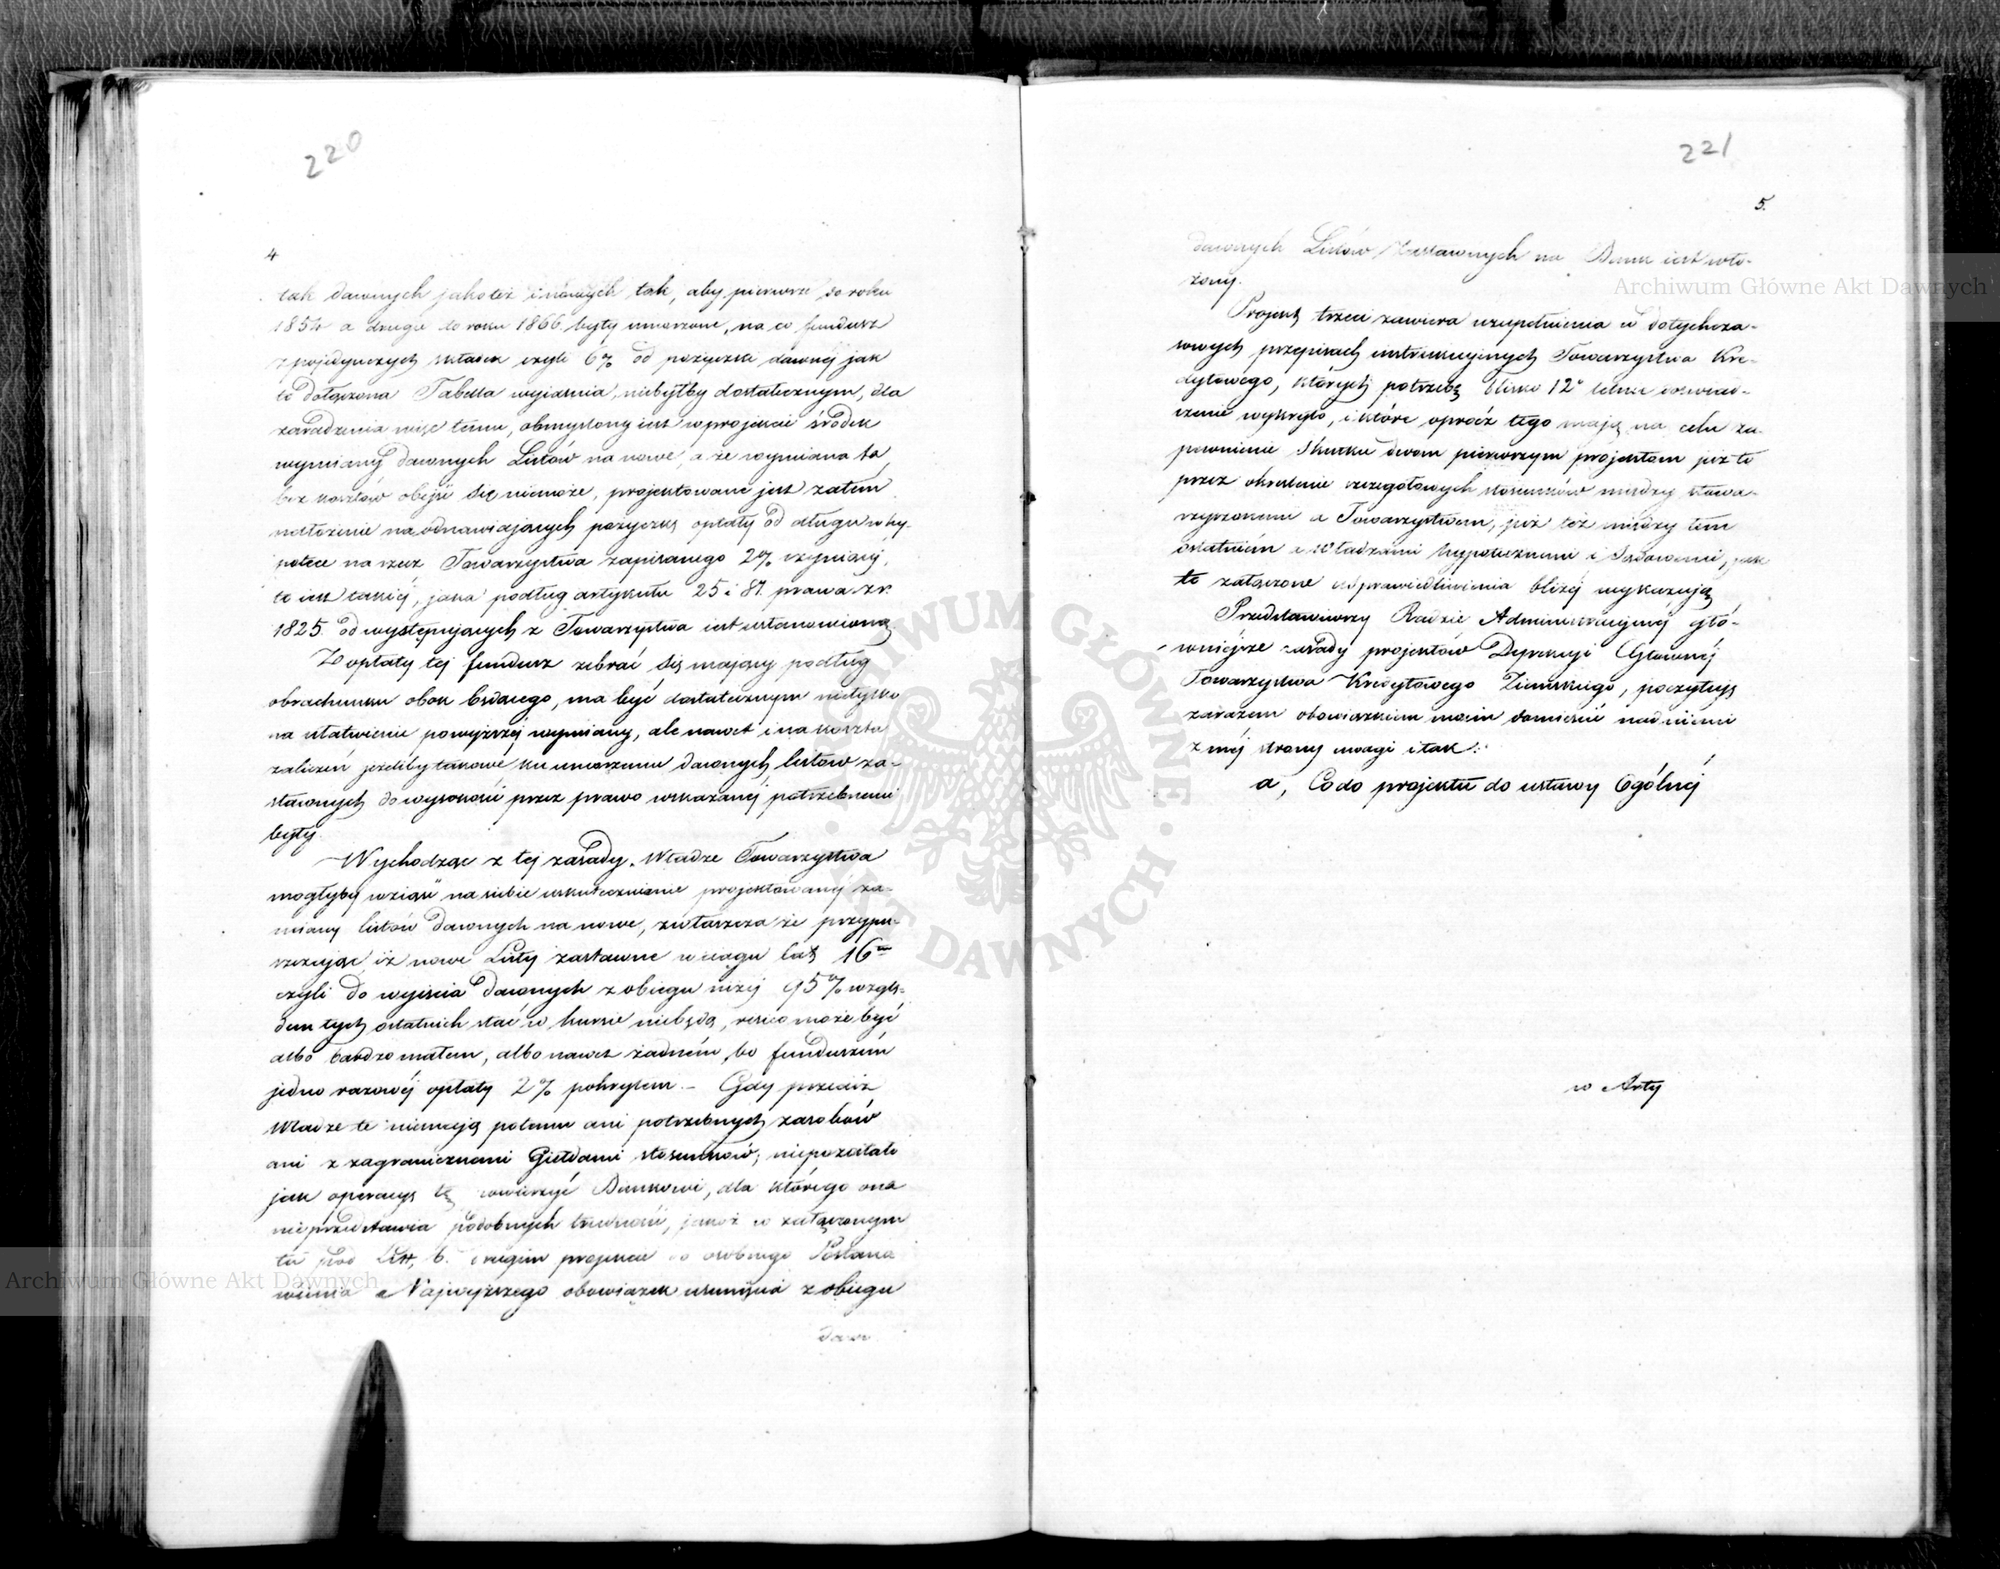 220
4
tak dawnych jako też i nowych tak, aby pierwsze do roku
1854 a drugie do roku 1866 były umorzone, na co fundusz
z pojedynczych składek czyli 6% od pożyczki dawnéj jak
to dołączona Tabella wyjaśnia, niebyłby dostatecznym, dla
zaradzenia więc temu, obmyślony iest w projekcie środek
wymiany dawnych Listów na nowe, a że wymiana ta
bez kosztów obejść się niemoże, projektowane jest zatem
nałożenie na odnawiających pożyczkę opłaty od długu w hy-
potece na rzecz Towarzystwa zapisanego 2%
to iest takiéj, jaka podług artykułu 25 i 81. prawa z r.
1825. od występujących z Towarzystwa iest ustanowioną
Z opłaty téj fundusz zebrać się mający podług
obrachunku obok będącego, ma być dostatecznym nietylko
na ułatwienie powyższéj wymiany, ale nawet i na koszta
zaliczeń jeżeliby takowe ku umorzeniu dawnych listów za-
stawnych do wysokości przez prawo wskazanéj potrzebnemi
były.
Wychodząc z téj zasady, Władze Towarzystwa
mogłyby wziąść na siebie uskutecznienie projektowanéj za-
miany listów dawnych na nowe, zwłaszcza że przypu-
szczając iż nowe Listy zastawne w ciągu lat 16tu
czyli do wyjścia dawnych z obiegu niżéj 95% wzglę-
dem tych ostatnich stać w kursie niebędą, resico może być
albo bardzo małem, albo nawet żadném, bo funduszem
jedno razowéj opłaty 2% pokrytem. – Gdy przecież
Władze te niemają potemu ani potrzebnych zasobów
ani z zagranicznemi Giełdami stosunków; niepozostało
jak operacyę tę powierzyć Bankowi, dla którego ona
nieprzedstawia podobnych trudności, jakoż w załączonym
tu pod Litt. b. drugim projekcie do osobnego Postano
wienia Najwyższego obowiązek usunięcia z obiegu
daw
221
5.
dawnych Listów Zastawnych na Bank iest wło-
żony.
Projekt trzeci zawiera uzupełnienia w dotychcza-
sowych przepisach instrukcyjnych Towarzystwa Kre-
dytowego, których potrzebę blisko 12o letnie doświad-
czenie wykryło, i które oprócz tego mają na celu za-
pewnienie skutku dwom pierwszym projektom już to
przez określenie szczegółowych stosunków między stowa-
rzyszonemi a Towarzystwem, już też między tem
ostatniém a władzami hypotecznemi i Sądowemi, jak
to załączone usprawiedliwienia bliżéj wykazują
Przedstawiwszy Radzie Administracyjnéj głó-
wniejsze zasady projektów Dyrekcyi Głównéj
Towarzystwa Kredytowego Ziemskiego, poczytuję
zarazem obowiązkiem moim domieścić nad niemi
z méj strony uwagi i tak:
a, Co do projektu do ustawy Ogólnéj
w Arty
Archiwum Główne Akt Dawnych
Archiwum Główne Akt Dawnych
ARCHIWUM GŁÓWNE · AKT DAWNYCH ·